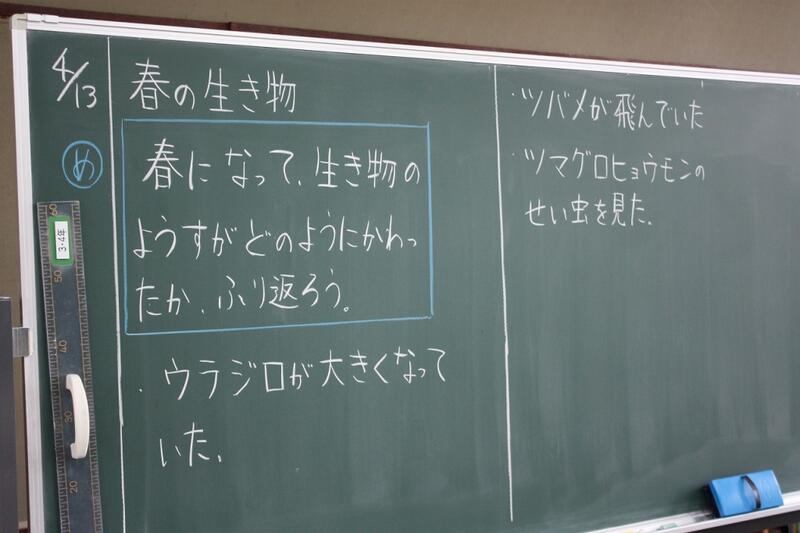 4/13
春の生き物
め
春になって、生き物の
ようすがどのようにかわっ
たか、ふり返ろう。
・ウラジロが大きくなって
いた。
・ツバメが飛んでいた
・ツマグロヒョウモンの
せい虫を見た。
3・4年
60
50
40
30
20